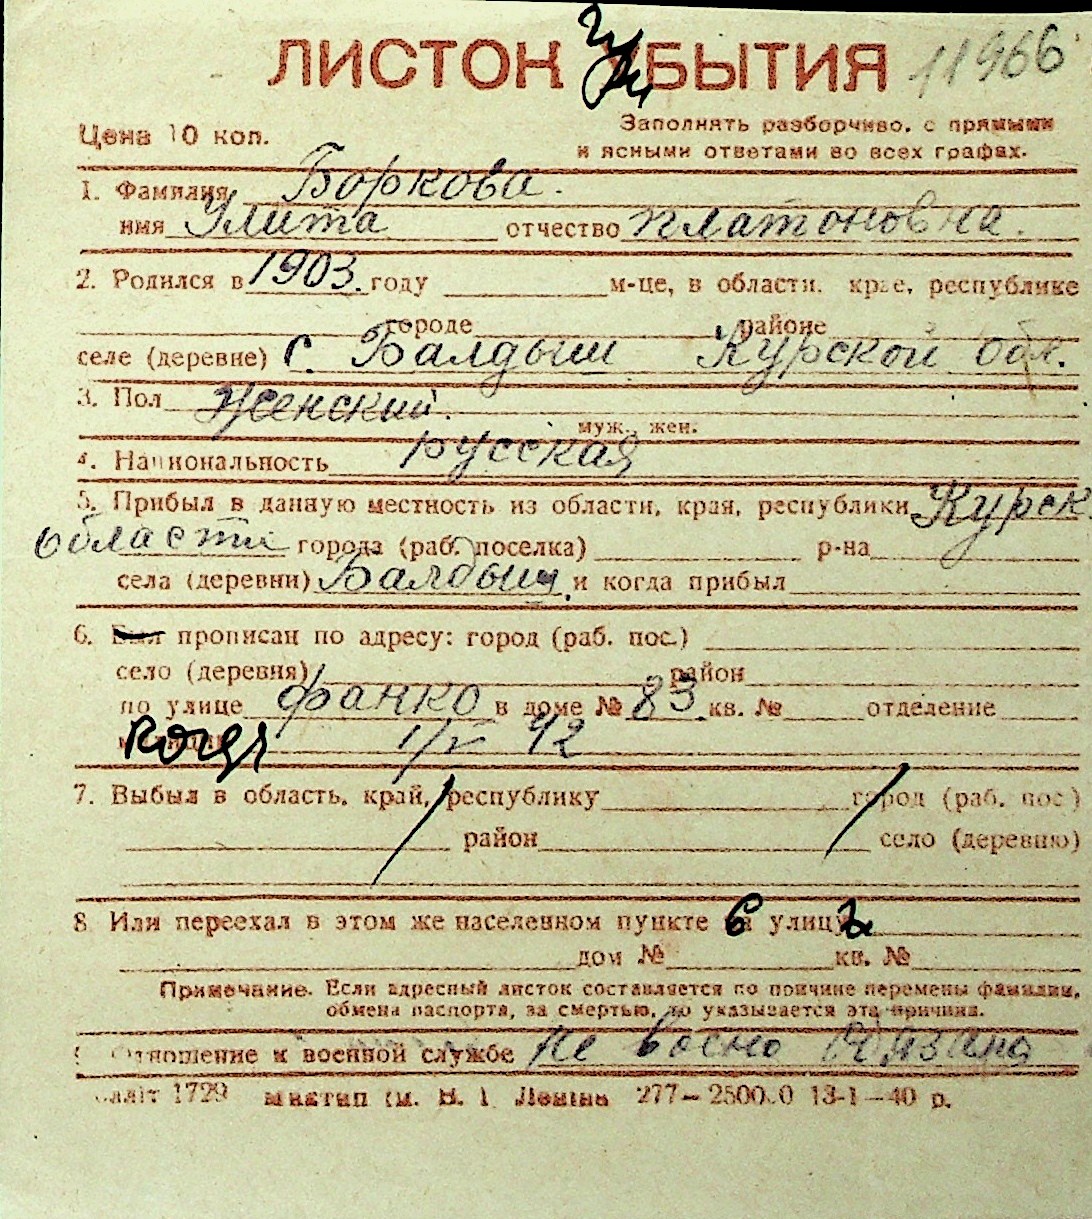 ЛИСТОК УБЫТИЯ 11966
Цена 10 коп.
Заполнять разборчиво, с прямыми
и ясными ответами во всех графах.
1. Фамилия Боркова.
имя Улита отчество Платоновна.
2. Родился в 1903. году м-це, в области, крае, республике
городе районе
селе (деревне) с. Балдыш Курской обл.
3. Пол Женский.
муж., жен.
4. Национальность русская
5. Прибыл в данную местность из области, края, республики Курск.
области города (раб. поселка) р-на
села (деревни) Балдыш, и когда прибыл
6. Был прописан по адресу: город (раб. пос.)
село (деревня) район
по улице Франко в доме № 83 кв. № отделение
когда 1/V 42
7. Выбыл в область, край, республику город (раб. пос.)
район село (деревню)
8 Или переехал в этом же населенном пункте в улицу
дом № кв. №
Примечание. Если адресный листок составляется по причине перемены фамилии,
обмена паспорта, за смертью, то указывается эта причина.
9 Отношение к военной службе не воено обязана
1729 277—2500.0 13-1—40 р.